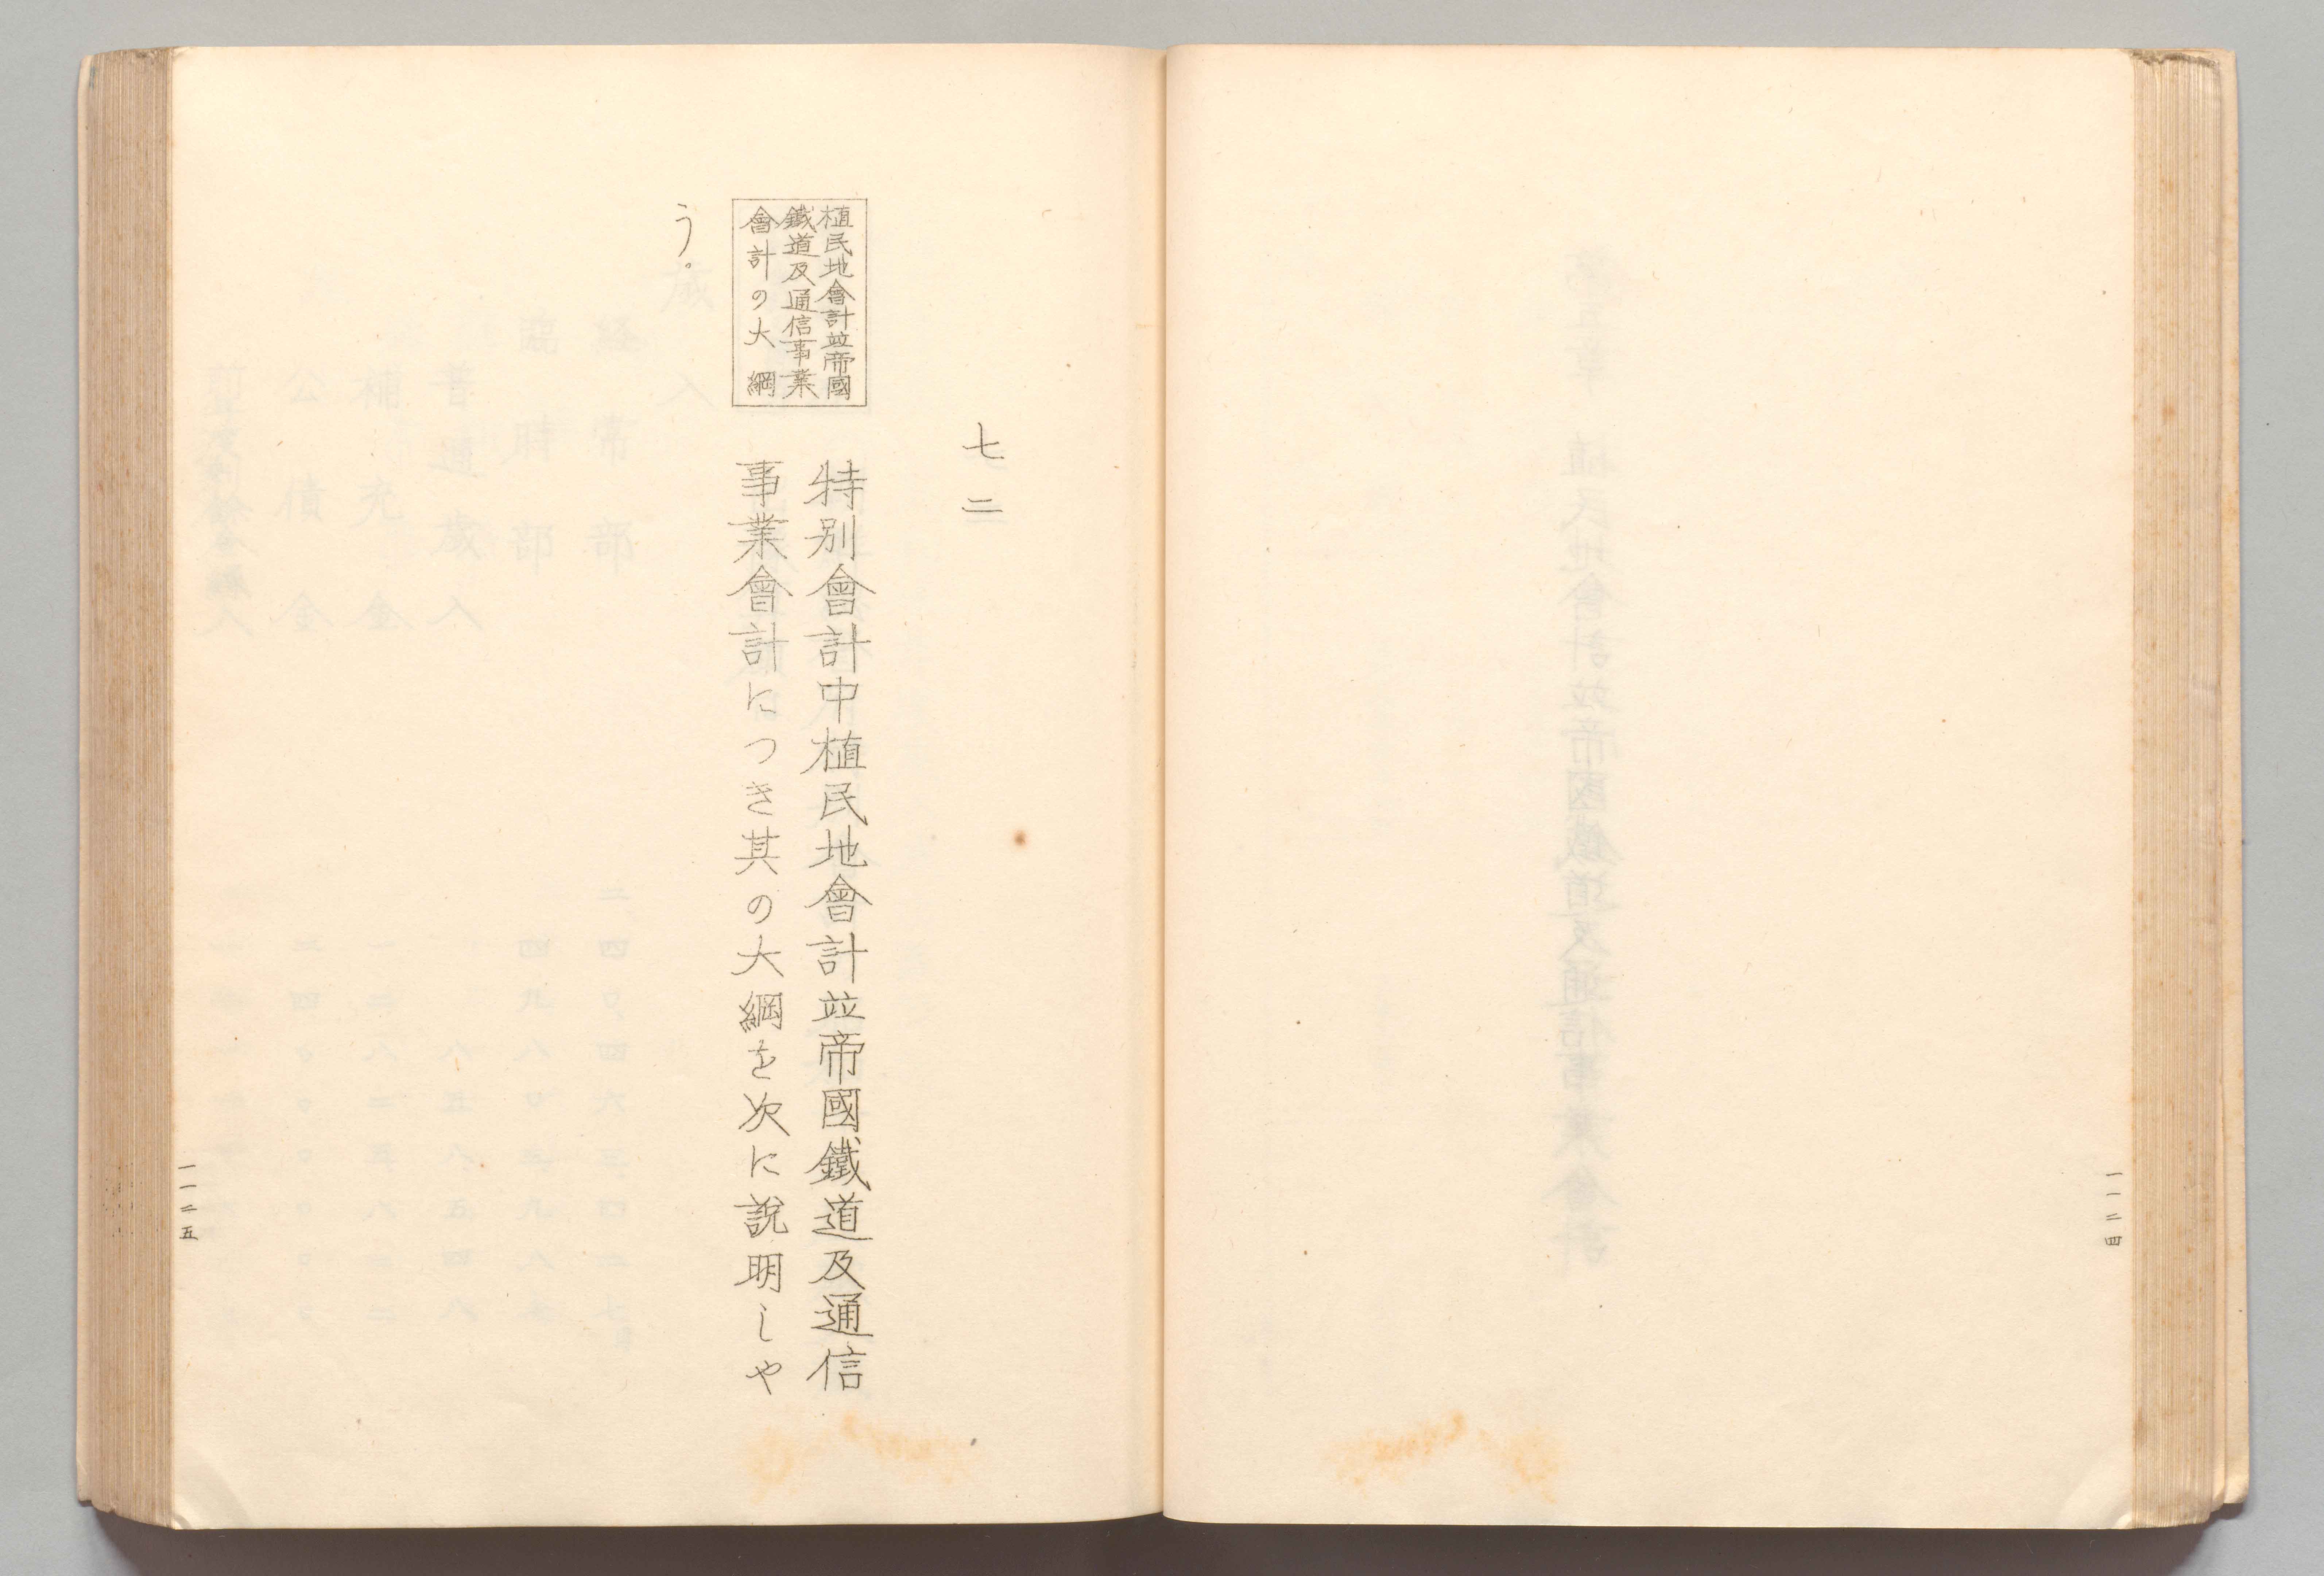 一一二四
七二
植民地會計竝帝國
鐵道及通信事業
會計の大綱
特別會計中植民地會計竝帝國鐵道及通信
事業會計につき其の大綱を次に說明しや
う。
一一二五